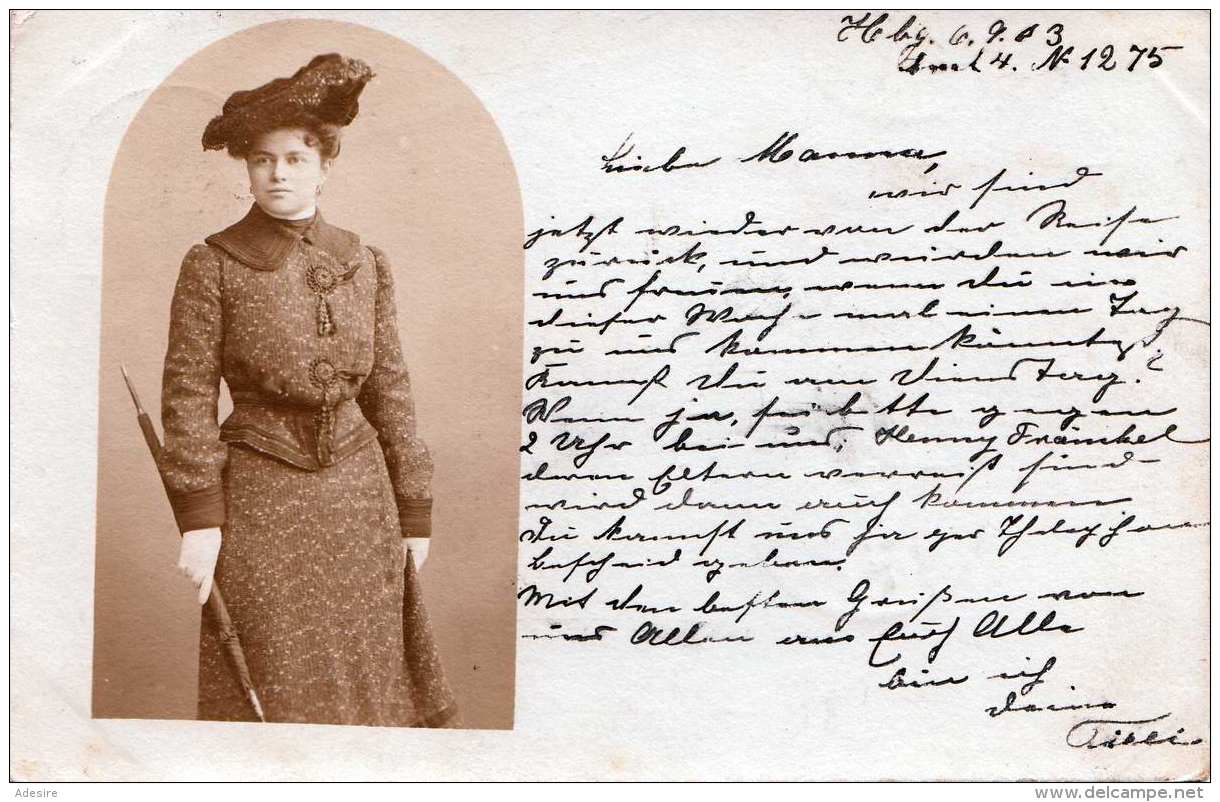 Hbg. 6.9.03
Amt 4. N 1275
Liebe Manna,
wir sind
jetzt wieder von der Reise
zurück, und würden wir
uns freuen, wenn du in
dieser Woche mal einen Tag
zu uns kommen könntest.
Kannst Du am Dienstag?
Wenn ja, sei bitte gegen
2 Uhr bei uns, Henny Fränkel
deren Eltern verreist sind
wird dann auch kommen
Du kannst uns ja per Telephon
bescheid geben.
Mit den besten Grüßen von
uns Allen an Euch Alle
bin ich
deine
Adesire
www.delcampe.net